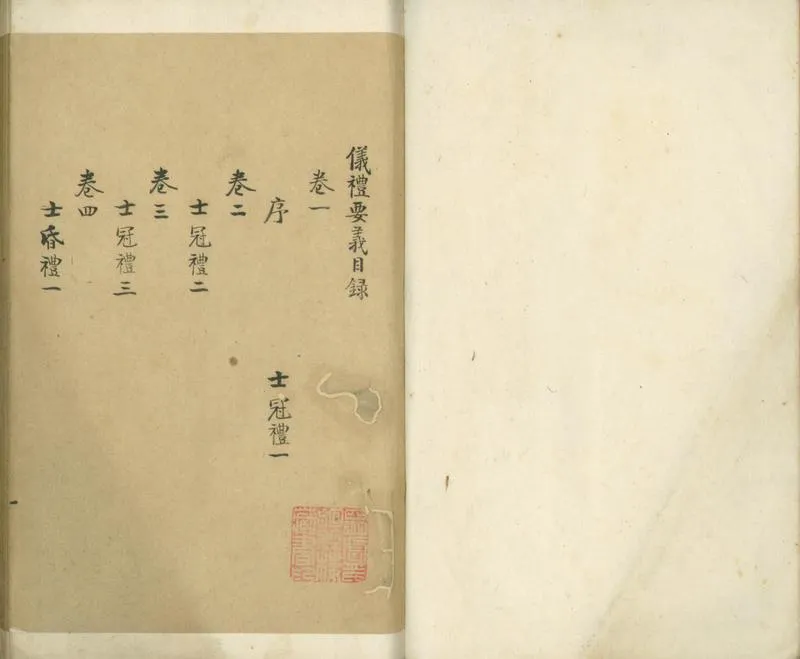 儀禮要義目録
卷一
序 士冠禮一
卷二
士冠禮二
卷三
士冠禮三
卷四
士昏禮一